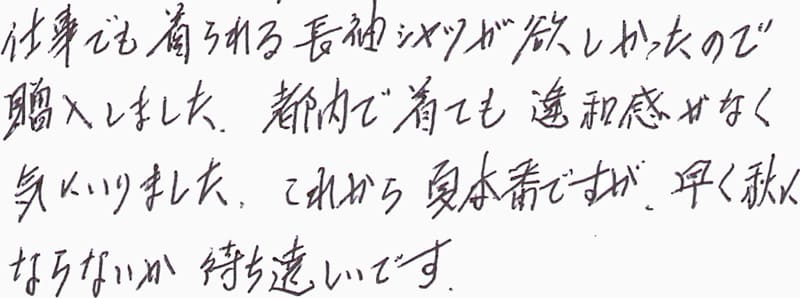 仕事でも着られる長袖シャツが欲しかったので
購入しました。都内で着ても違和感がなく
気にいりました。これから夏本番ですが、早く秋に
ならないか待ち遠しいです。